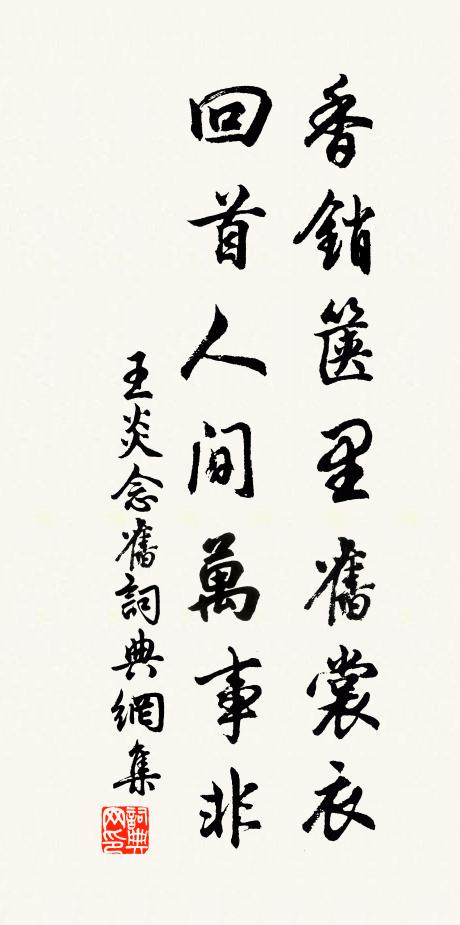 香銷篋里舊裳衣
回首人间萬事非
王炎念舊詞典網集
詞典网印